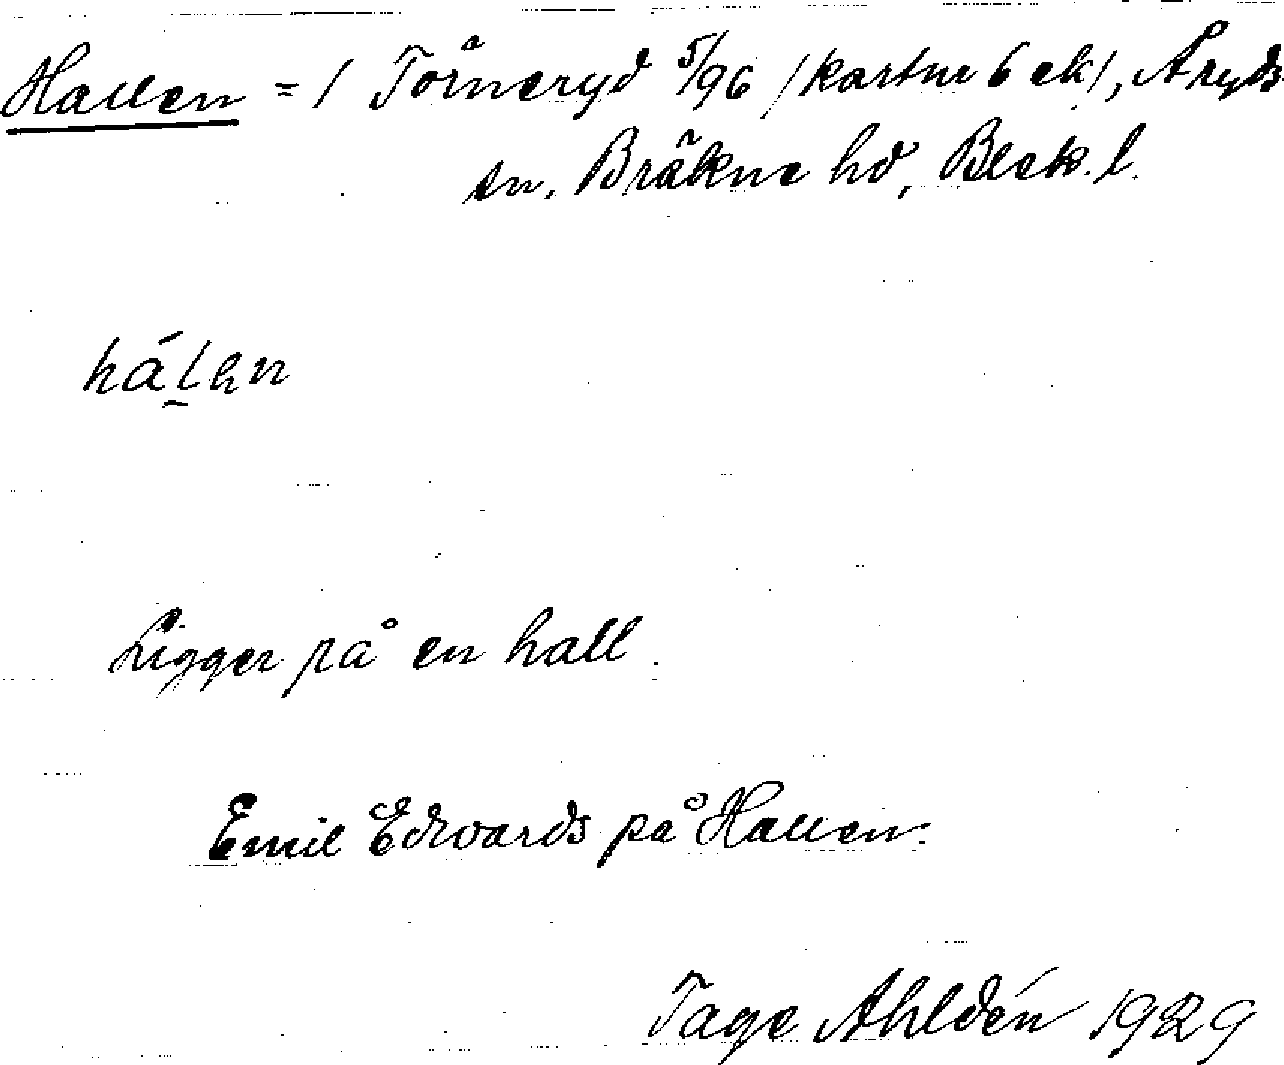 Hallen = / Törneryd 5/96 /kartnr 6 ek/, Åryds
sn. Bräkne hd, Blek. l.
hálhn
Ligger på en hall.
Emil Edvards på Hallen.
Tage Ahldén 1929